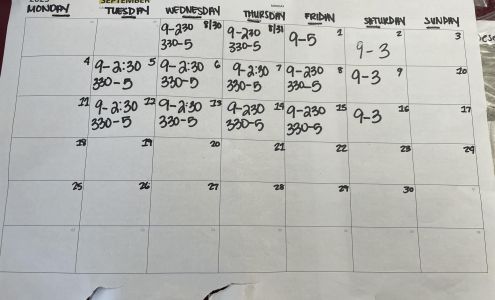 SEPTEMBER
MONDAY TUESDAY WEDNESDAY THURSDAY FRIDAY SATURDAY SUNDAY
9-230 8/30 9-230 8/31 9-5 1 9-3 2 3
330-5 330-5
4 9-2:30 5 9-2:30 6 9-2:30 7 9-230 8 9-3 9 10
330-5 330-5 330-5 330-5
11 9-2:30 12 9-2:30 13 9-230 14 9-230 15 9-3 16 17
330-5 330-5 330-5 330-5
18 19 20 21 22 23 24
25 26 27 28 29 30